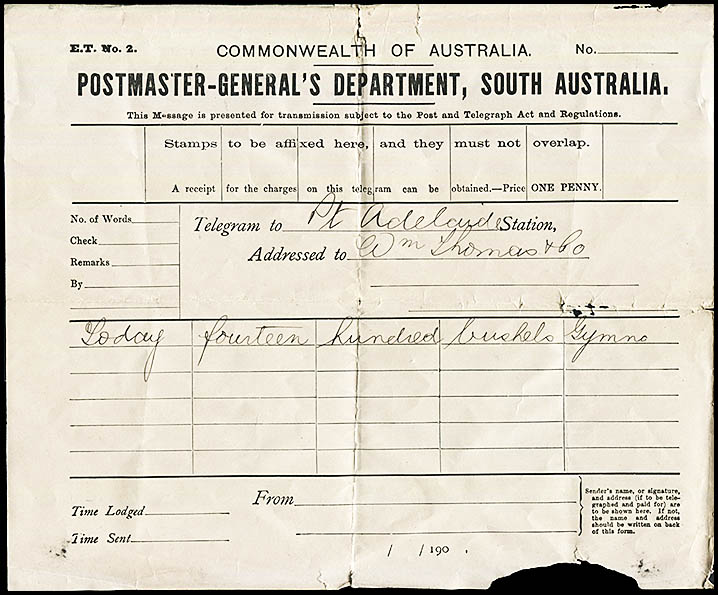 E.T. No. 2. COMMONWEALTH OF AUSTRALIA. No.
POSTMASTER-GENERAL'S DEPARTMENT, SOUTH AUSTRALIA.
This Message is presented for transmission subject to the Post and Telegraph Act and Regulations.
Stamps to be affixed here, and they must not overlap.
A receipt for the charges on this telegram can be obtained.—Price ONE PENNY.
No. of Words
Check
Remarks
By
Telegram to Pt Adelaide Station,
Addressed to Wm Thomas & Co
Today fourteen hundred bushels Gymno
Time Lodged
Time Sent
From
Sender's name, or signature,
and address (if to be tele-
graphed and paid for) are
to be shown here. If not,
the name and address
should be written on back
of this form.
/ /190 .